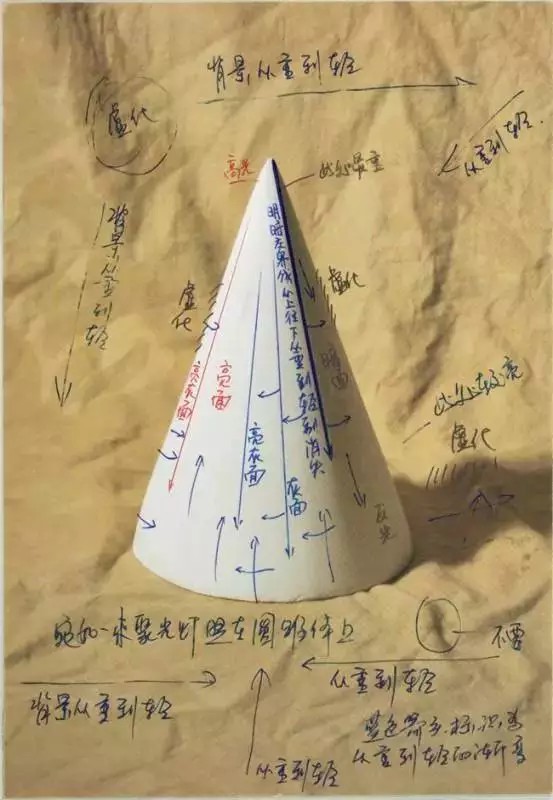 背景从重到轻
虚化
从重到轻
高光
此处最重
背景从重到轻
虚化
明暗交界线从上往下从重到轻到消失
虚化
亮灰面
亮面
暗面
此处较亮
虚化
亮灰面
灰面
反光
宛如一束聚光灯照在圆锥体上
不要
背景从重到轻
从重到轻
从重到轻
蓝色箭头标识为
从重到轻的渐变